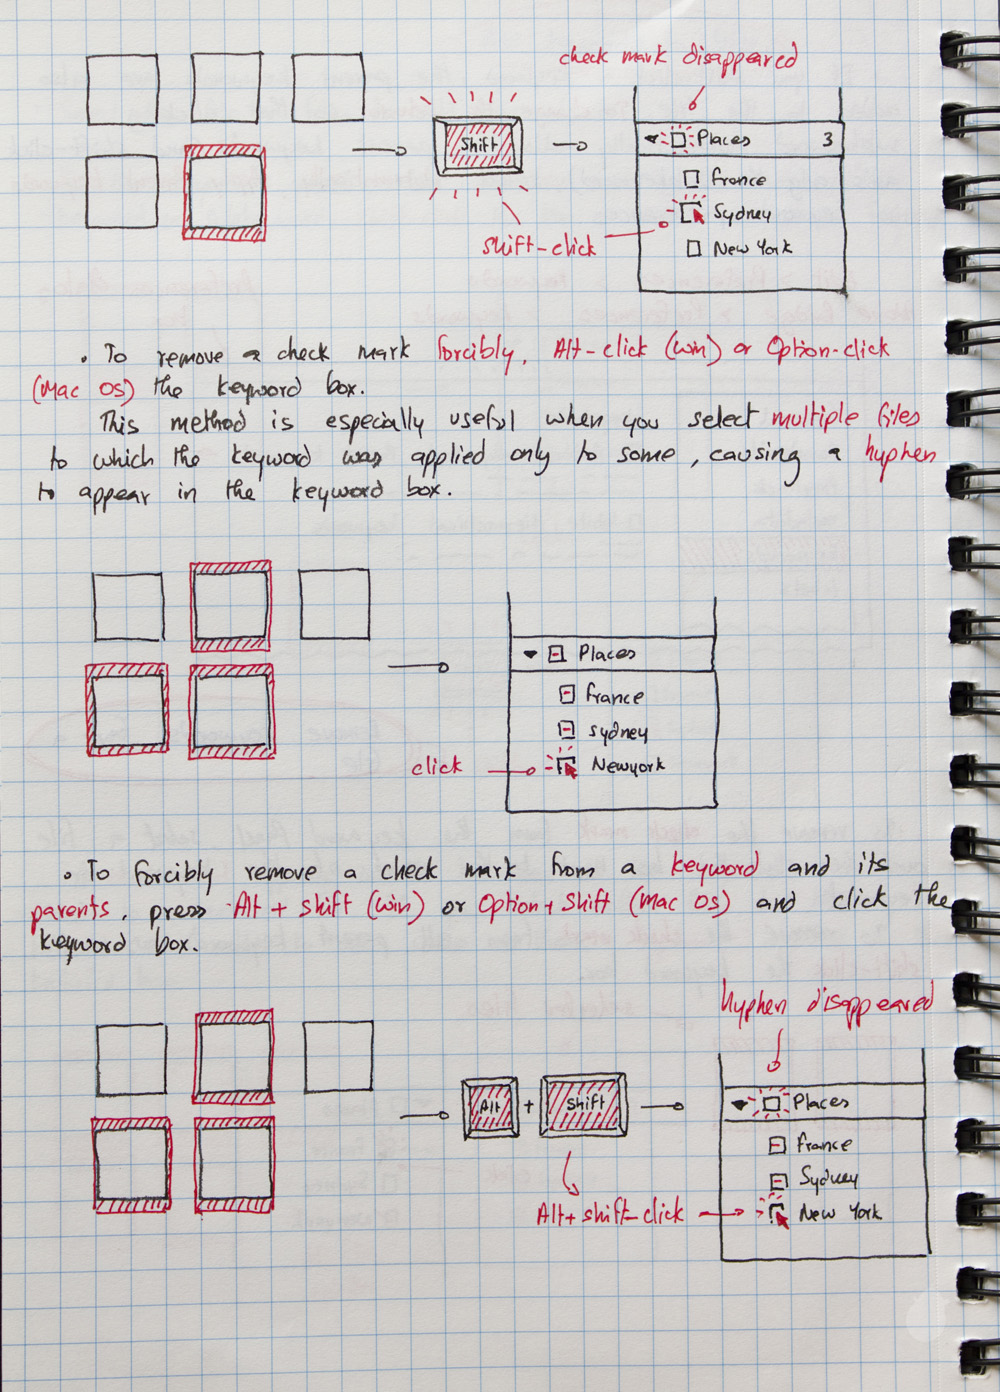 check mark disappeared
Shift
Places 3
France
Sydney
New York
shift-click
• To remove a check mark forcibly, Alt-click (win) or Option-click
(Mac OS) the keyword box.
This method is especially useful when you select multiple files
to which the keyword was applied only to some, causing a hyphen
to appear in the keyword box.
Places
France
Sydney
Newyork
click
• To forcibly remove a check mark from a keyword and its
parents, press Alt + Shift (win) or Option + Shift (Mac OS) and click the
keyword box.
hyphen disappeared
Alt + Shift
Places
France
Sydney
New York
Alt + shift-click